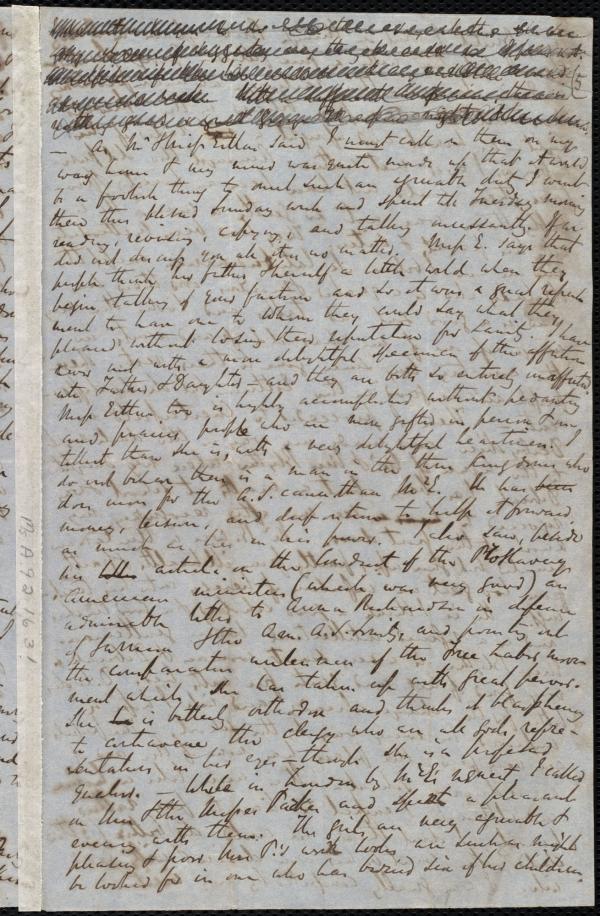 — As Miss Estlin said I must call on them on my
way home & my mind was quite made up that it would
be a foolish thing to omit such an agreeable duty I went
there this blessed Sunday week and spent till Tuesday morning
reading, revising, copying, and talking incessantly. If we
did not discuss you all it is no matter. Miss E. says that
people think her father & herself a little mad when they
begin talking of your faction and so it was a great refresh
ment to have one to whom they could say what they
pleased without losing their reputation for sanity. I have
never met with a more delightful specimen of the affection
ate Father & Daughter — and they are both so entirely unaffected
Miss Estlin too is highly accomplished without pedantry
and praises people who are more gifted in person & my
talent than she is, with a very delightful heartiness. I
do not believe there is a man in the three Kingdoms who
does more for the A.S. cause than Mr E. He has
money, leisure, and disposition to help it forward
as much as lies in his power. I also saw, beside
his article on the Conduct of the Proslavery
American ministers (which was very good) an
admirable letter to Anna Richardson in defence
of Garrison & the Am. A.S. Society, and pointing out
the comparative uselessness of the Free Labor move-
ment which she has taken up with great perseve-
She is bitterly orthodox and thinks it blasphemy
to contravene the clergy who are all God's repre-
sentatives in her eyes — though she is a professed
Quaker. — While in London by Mr E's request I called
on Mrs & the Misses Parker and spent a pleasant
evening with them. The girls are very agreeable &
pleasing & poor Mrs P.'s looks are such as might
be looked for in one who has buried six of her children
Ms.A.9.2.16.31